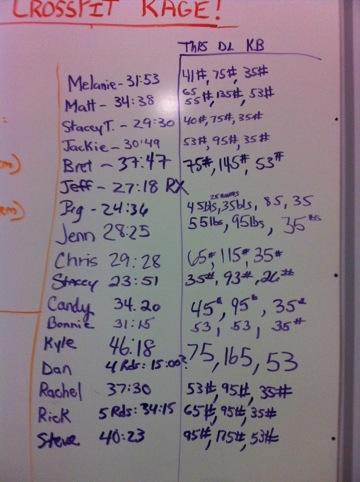 CROSSFIT KAGE!
THRS DL KB
Melanie - 31:53 41#, 75#, 35#
Matt - 34:38 65 55#, 135#, 53#
Stacey T. - 29:30 40#, 75#, 35#
Jackie - 30:49 53#, 95#, 35#
Bret - 37:47 75#, 145#, 53#
Jeff - 27:18 RX
Peg - 24:36 45lbs, 35lbs, 85, 35
Jenn 28:25 55lbs, 95lbs, 35 lbs
Chris 29:28 65#, 115#, 35#
Stacey 23:51 35#, 93#, 26#
Candy 34.20 45#, 95#, 35#
Bonnie 31:15 53, 53, 35#
Kyle 46:18 75, 165, 53
Dan 4 Rds: 15:00?
Rachel 37:30 53#, 95#, 35#
Rick 5 Rds: 34:15 65#, 95#, 35#
Steve 40:23 95#, 175#, 53#